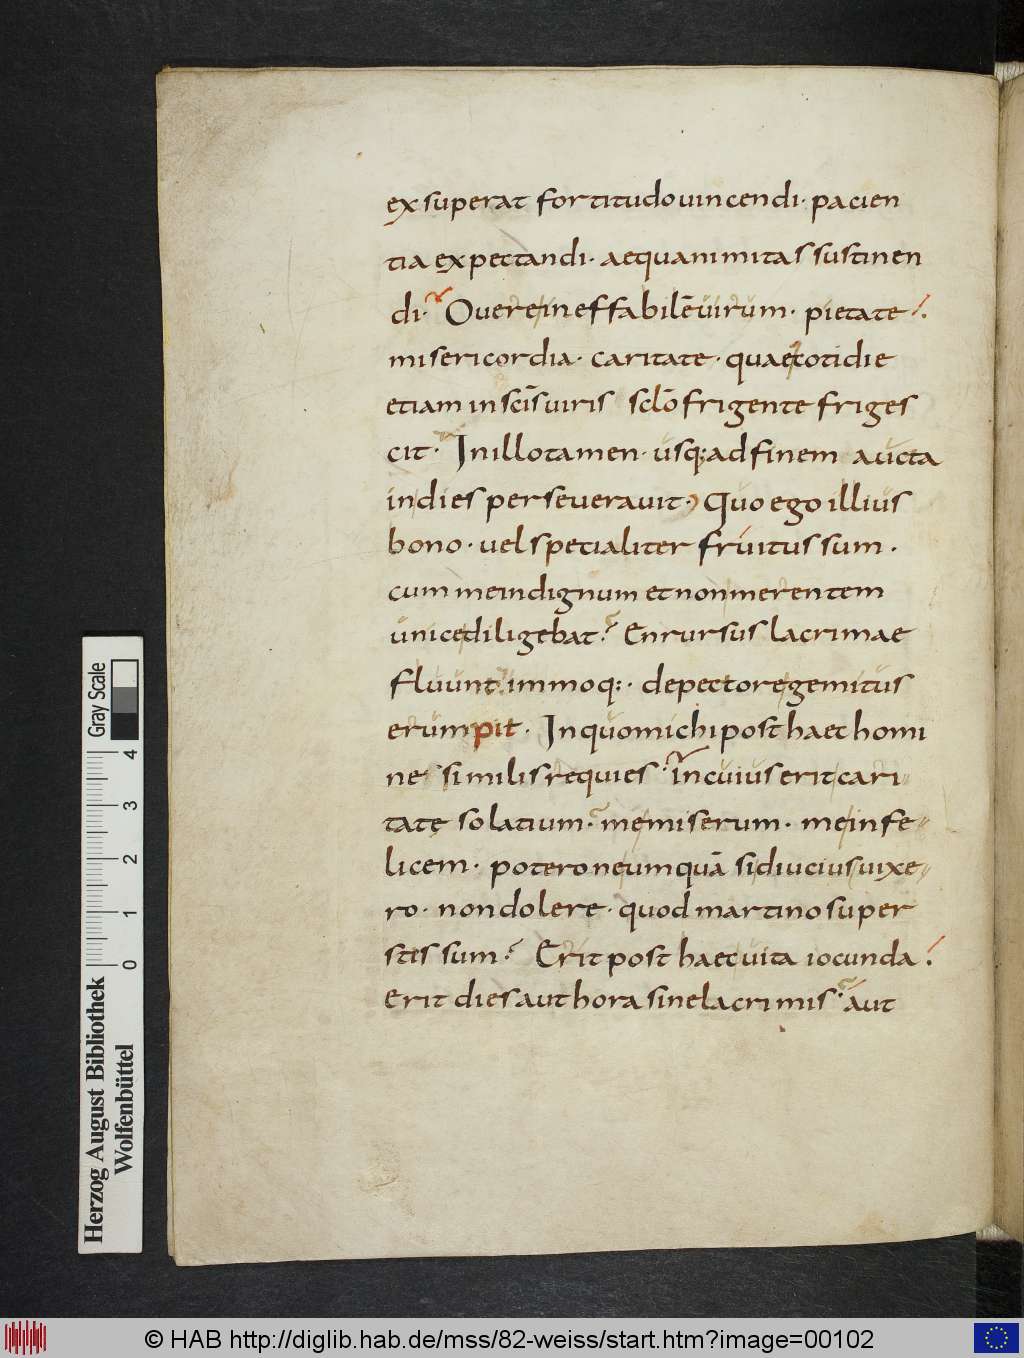 exsuperat fortitudo uincendi · pacien
tia expectandi · aequanimitas sustinen
di · O uere ineffabilē uirum · pietate ·
misericordia · caritate · quae cotidie
etiam in scīs uiris sclō frigente friges
cit · In illo tamen · usq; ad finem aucta
in dies perseueravit · Quo ego illius
bono · uel spetialiter fruitus sum ·
cum me indignum et non merentem
unice diligebat · En rursus lacrimae
fluunt immoq; · de pectore gemitus
erumpit · In quo michi post haec homi
ne similis requies · In cuius erit cari
tate solatium · me miserum · me infe
licem · potero ne umquā si diucius uixe
ro · non dolere · quod martino super
stis sum · Erit post haec uita iocunda ·
Erit dies aut hora sine lacrimis · aut
Herzog August Bibliothek
Wolfenbüttel
Gray Scale
0 1 2 3 4
© HAB http://diglib.hab.de/mss/82-weiss/start.htm?image=00102